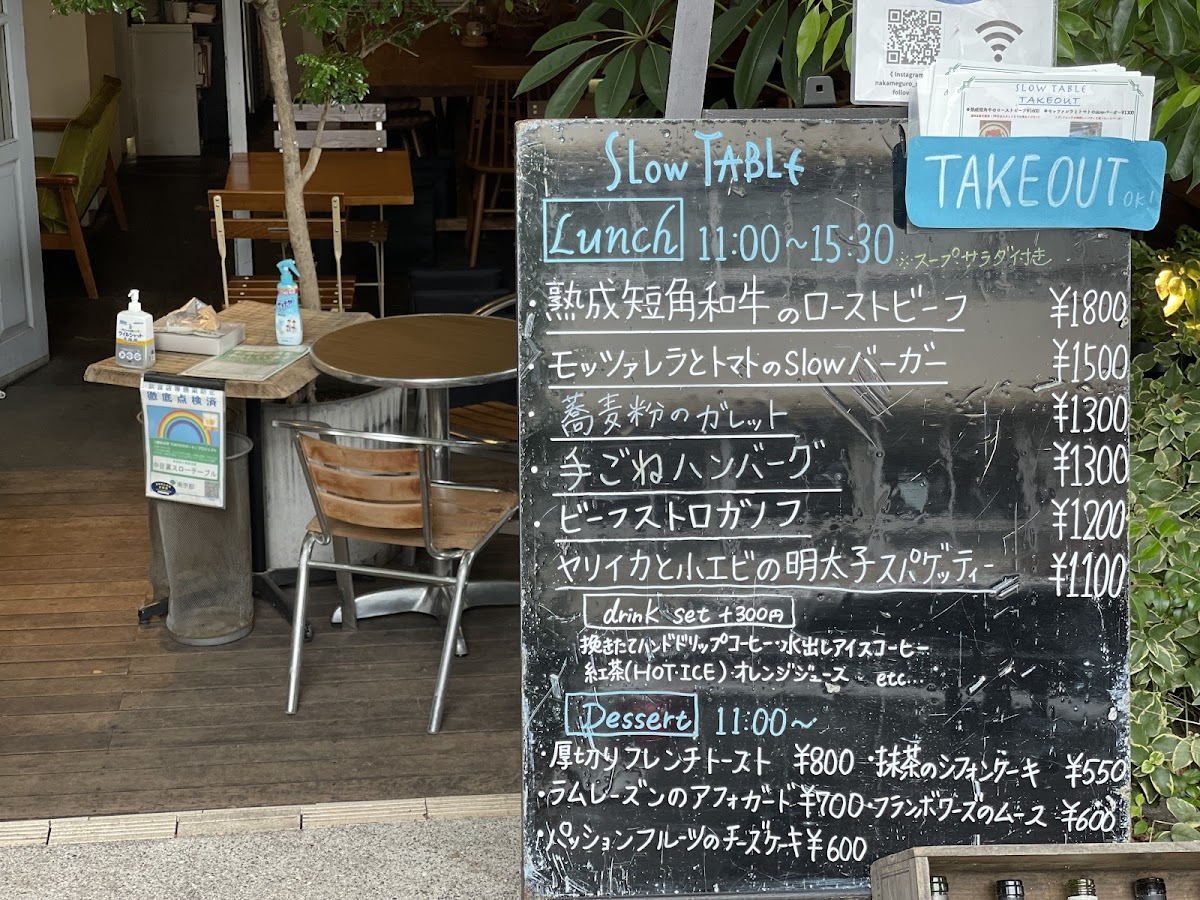 《 Instagram
nakameguro_
follow
SLOW TABLE
TAKEOUT
TAKEOUT OK!
SLow TABLe
Lunch 11:00～15:30
※スープ・サラダ付き
・熟成短角和牛のローストビーフ ¥1800
・モッツァレラとトマトのslowバーガー ¥1500
・蕎麦粉のガレット ¥1300
・手ごねハンバーグ ¥1300
・ビーフストロガノフ ¥1200
・ヤリイカと小エビの明太子スパゲッティー ¥1100
drink set +300円
挽きたてハンドドリップコーヒー・水出しアイスコーヒー
紅茶(HOT・ICE)・オレンジジュース etc...
Dessert 11:00～
・厚切りフレンチトースト ¥800 ・抹茶のシフォンケーキ ¥550
・ラムレーズンのアフォガード ¥700 ・フランボワーズのムース ¥600
・パッションフルーツのチーズケーキ ¥600
徹底点検済
中目黒スローテーブル
東京都